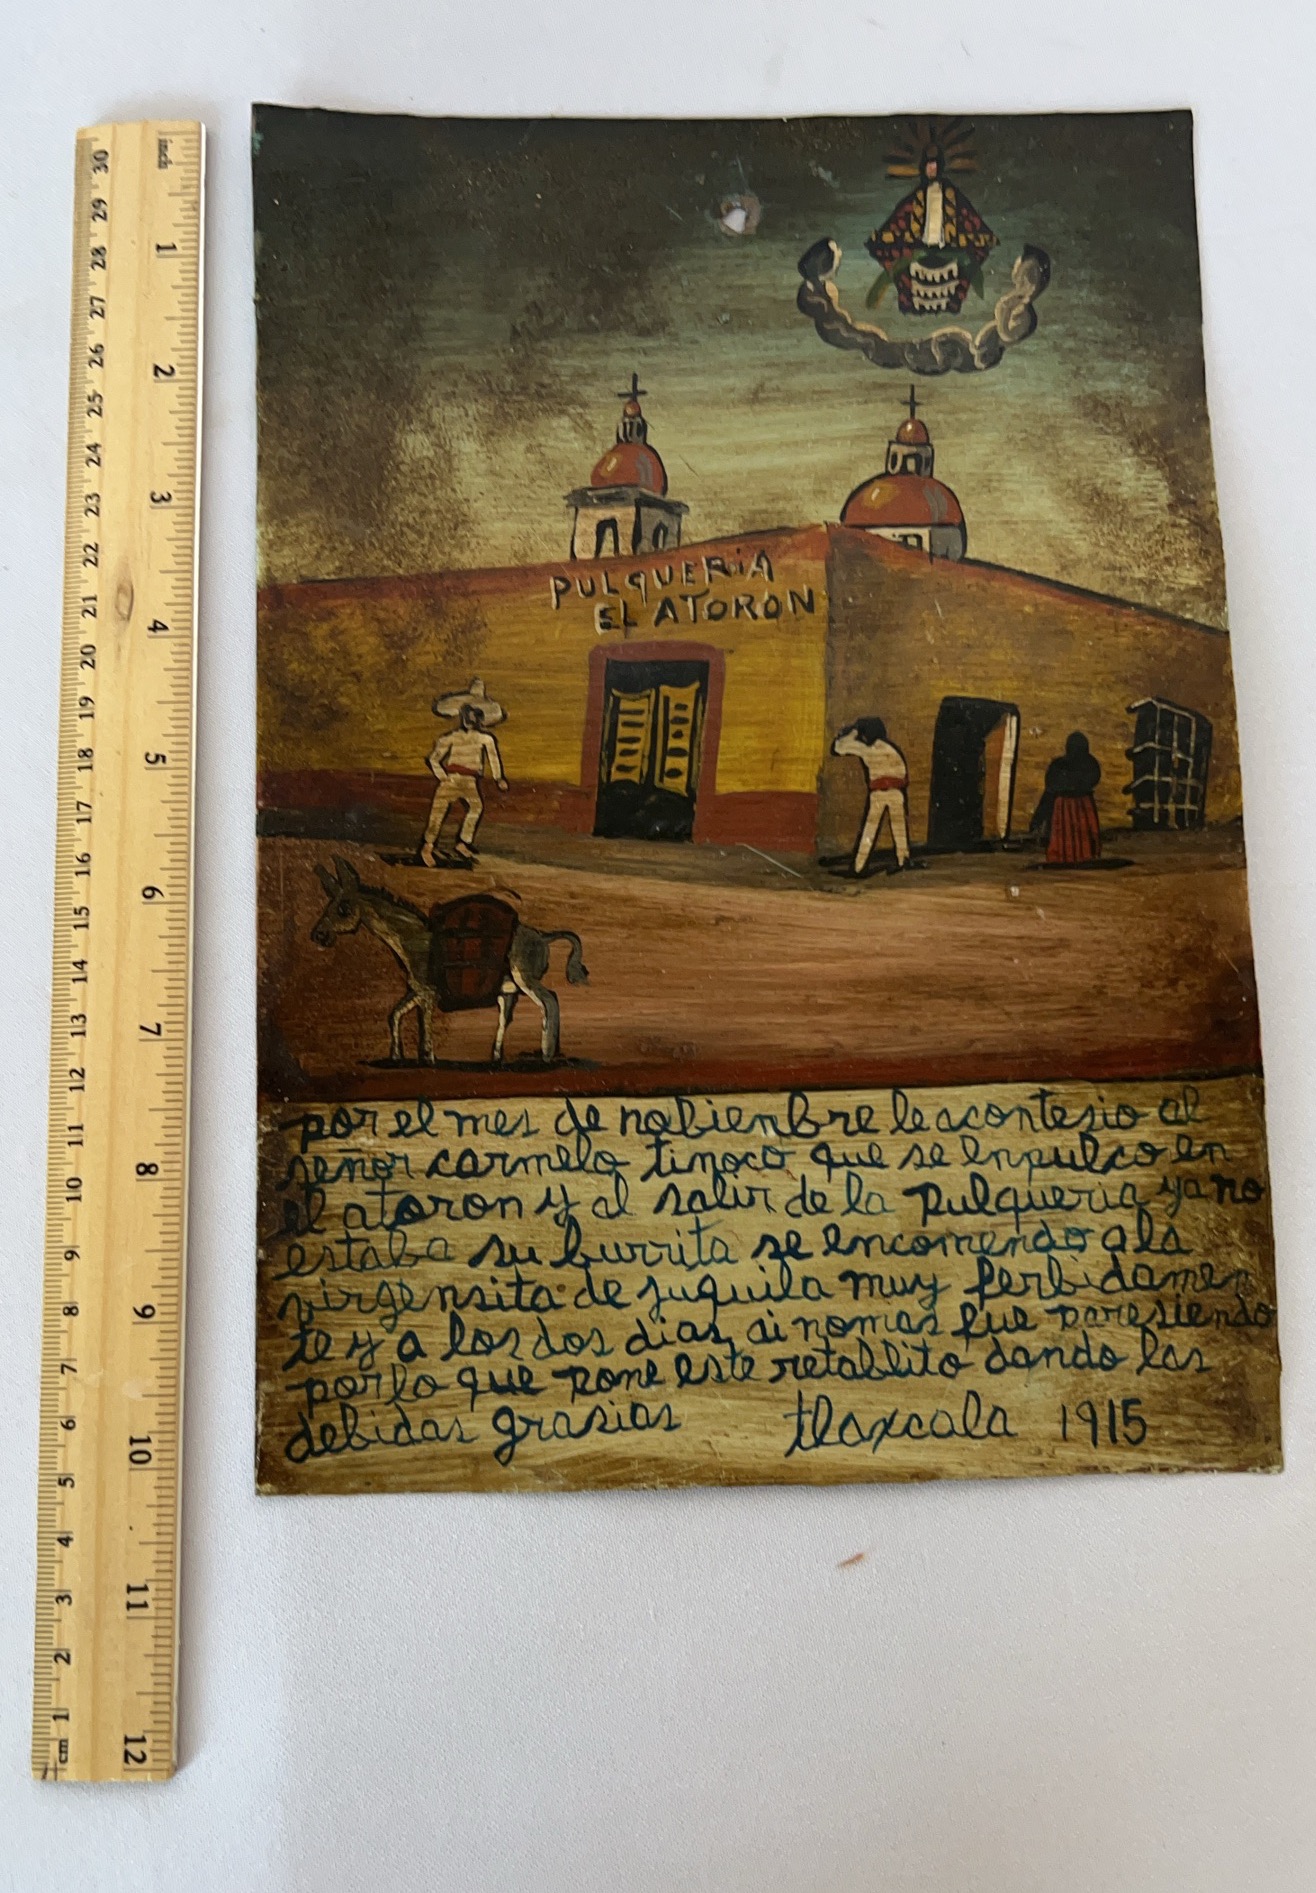 PULQUERiA
EL ATORON
por el mes de nobienbre le acontesio al
señor carmelo tinoco que se enpulco en
el atoron y al salir de la pulqueria ya no
estaba su burrita se encomendo ala
virgensita de juquila muy ferbidamen
te y a los dos dias ai nomas fue paresiendo
por lo que pone este retablito dando las
debidas grasias tlaxcala 1915
inch
1
2
3
4
5
6
7
8
9
10
11
12
30
29
28
27
26
25
24
23
22
21
20
19
18
17
16
15
14
13
12
11
10
9
8
7
6
5
4
3
2
1
cm